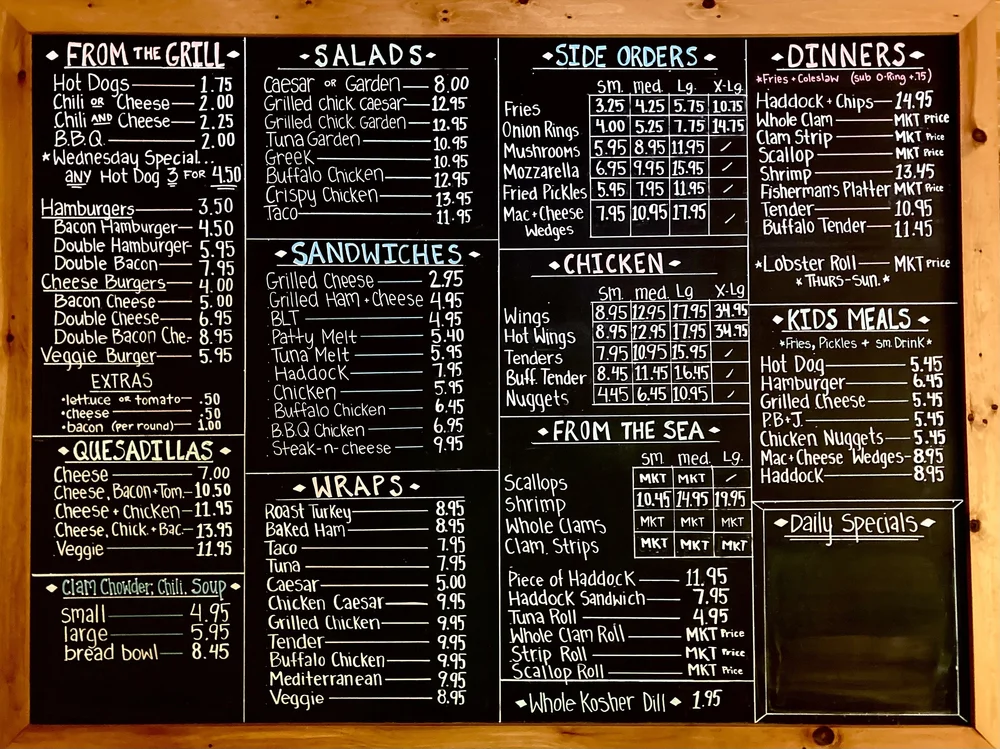 FROM THE GRILL
Hot Dogs 1.75
Chili OR Cheese 2.00
Chili AND Cheese 2.25
B.B.Q. 2.00
*Wednesday Special...
ANY Hot Dog 3 FOR 4.50
Hamburgers 3.50
Bacon Hamburger 4.50
Double Hamburger 5.95
Double Bacon 7.95
Cheese Burgers 4.00
Bacon Cheese 5.00
Double Cheese 6.95
Double Bacon Che. 8.95
Veggie Burger 5.95
EXTRAS
•lettuce OR tomato .50
•cheese .50
•bacon (per round) 1.00
QUESADILLAS
Cheese 7.00
Cheese, Bacon+Tom. 10.50
Cheese + Chicken 11.95
Cheese, Chick.+Bac. 13.95
Veggie 11.95
Clam Chowder, Chili, Soup
small 4.95
large 5.95
bread bowl 8.45
SALADS
Caesar OR Garden 8.00
Grilled chick caesar 12.95
Grilled Chick Garden 12.95
Tuna Garden 10.95
Greek 10.95
Buffalo Chicken 12.95
Crispy Chicken 13.95
Taco 11.95
SANDWICHES
Grilled Cheese 2.95
Grilled Ham + Cheese 4.95
BLT 4.95
Patty Melt 5.40
Tuna Melt 5.95
Haddock 7.95
Chicken 5.95
Buffalo Chicken 6.45
B.B.Q Chicken 6.95
Steak-n-cheese 9.95
WRAPS
Roast Turkey 8.95
Baked Ham 8.95
Taco 7.95
Tuna 7.95
Caesar 5.00
Chicken Caesar 9.95
Grilled Chicken 9.95
Tender 9.95
Buffalo Chicken 9.95
Mediterranean 9.95
Veggie 8.95
SIDE ORDERS
Sm. med. Lg. X-Lg
Fries 3.25 4.25 5.75 10.75
Onion Rings 4.00 5.25 7.75 14.75
Mushrooms 5.95 8.95 11.95 /
Mozzarella 6.95 9.95 15.95 /
Fried Pickles 5.95 7.95 11.95 /
Mac+Cheese 7.95 10.95 17.95 /
Wedges
CHICKEN
Sm. med. Lg X-Lg
Wings 8.95 12.95 17.95 34.95
Hot Wings 8.95 12.95 17.95 34.95
Tenders 7.95 10.95 15.95 /
Buff. Tender 8.45 11.45 16.45 /
Nuggets 4.45 6.45 10.95 /
FROM THE SEA
Sm med. Lg.
Scallops MKT MKT /
Shrimp 10.45 14.95 19.95
Whole Clams MKT MKT MKT
Clam Strips MKT MKT MKT
Piece of Haddock 11.95
Haddock Sandwich 7.95
Tuna Roll 4.95
Whole Clam Roll MKT Price
Strip Roll MKT Price
Scallop Roll MKT Price
Whole Kosher Dill 1.95
DINNERS
*Fries + Coleslaw (sub O-Ring +.75)
Haddock + Chips 14.95
Whole Clam MKT Price
Clam Strip MKT Price
Scallop MKT Price
Shrimp 13.45
Fisherman's Platter MKT Price
Tender 10.95
Buffalo Tender 11.45
*Lobster Roll MKT Price
* THURS-SUN. *
KIDS MEALS
*Fries, Pickles + sm. Drink*
Hot Dog 5.45
Hamburger 6.45
Grilled Cheese 5.45
P.B+J. 5.45
Chicken Nuggets 5.45
Mac+Cheese Wedges 8.95
Haddock 8.95
Daily Specials